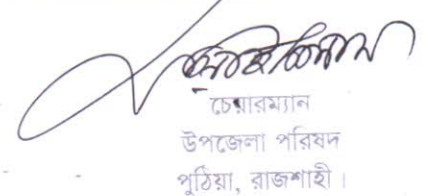 চেয়ারম্যান
উপজেলা পরিষদ
পুঠিয়া, রাজশাহী।